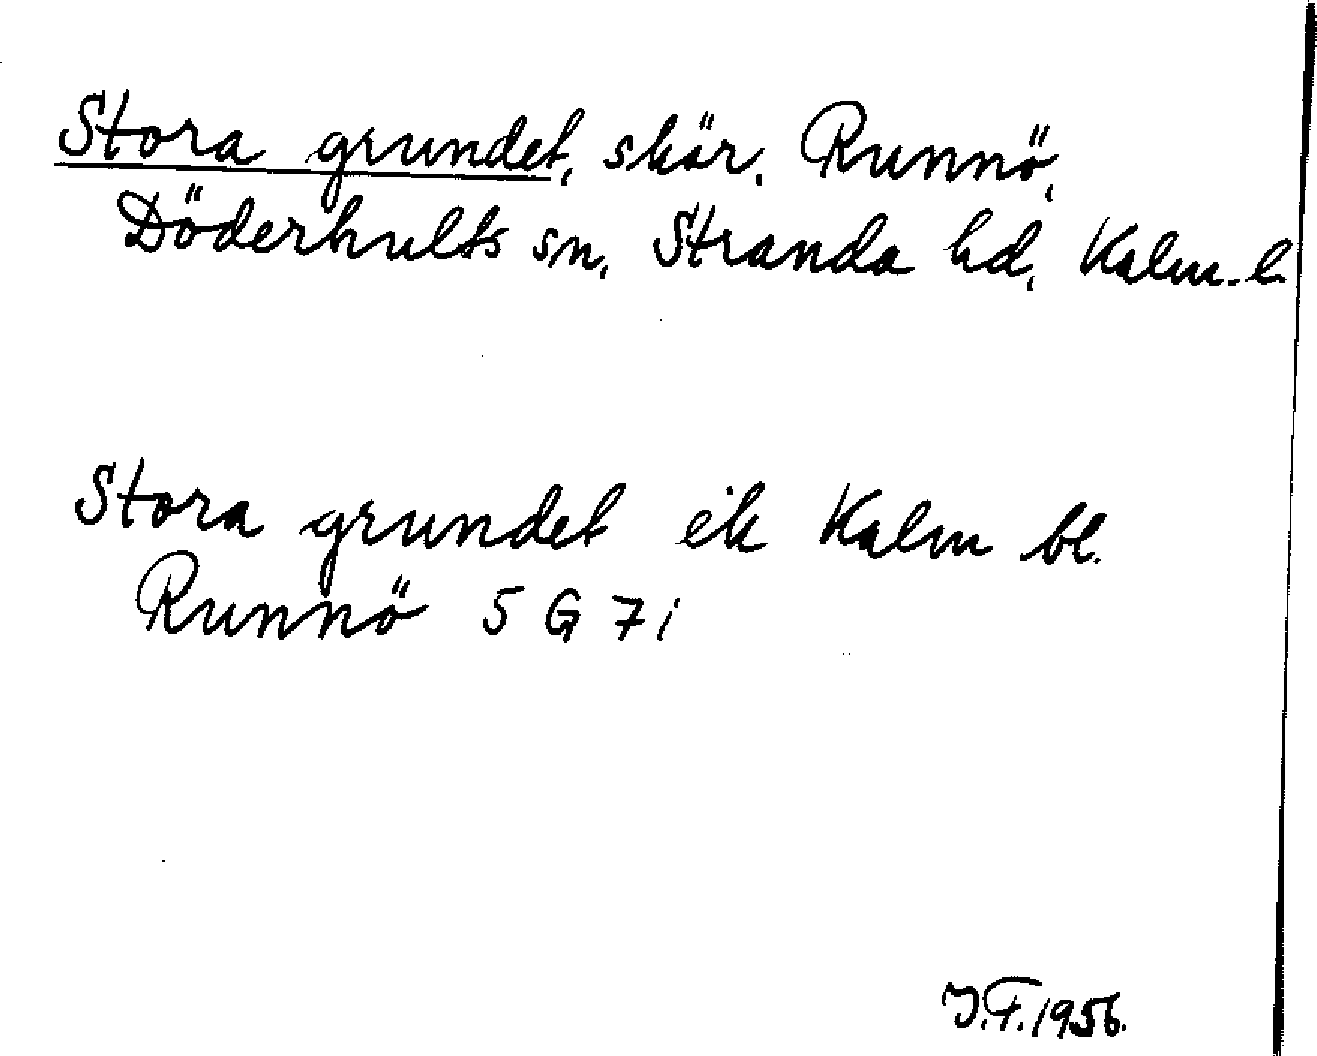 Stora grundet, skär, Runnö,
Döderhults sn, Stranda hd, Kalm. l.
Stora grundet ek Kalm bl.
Runnö 5 G 7 i
J.F. 1956.